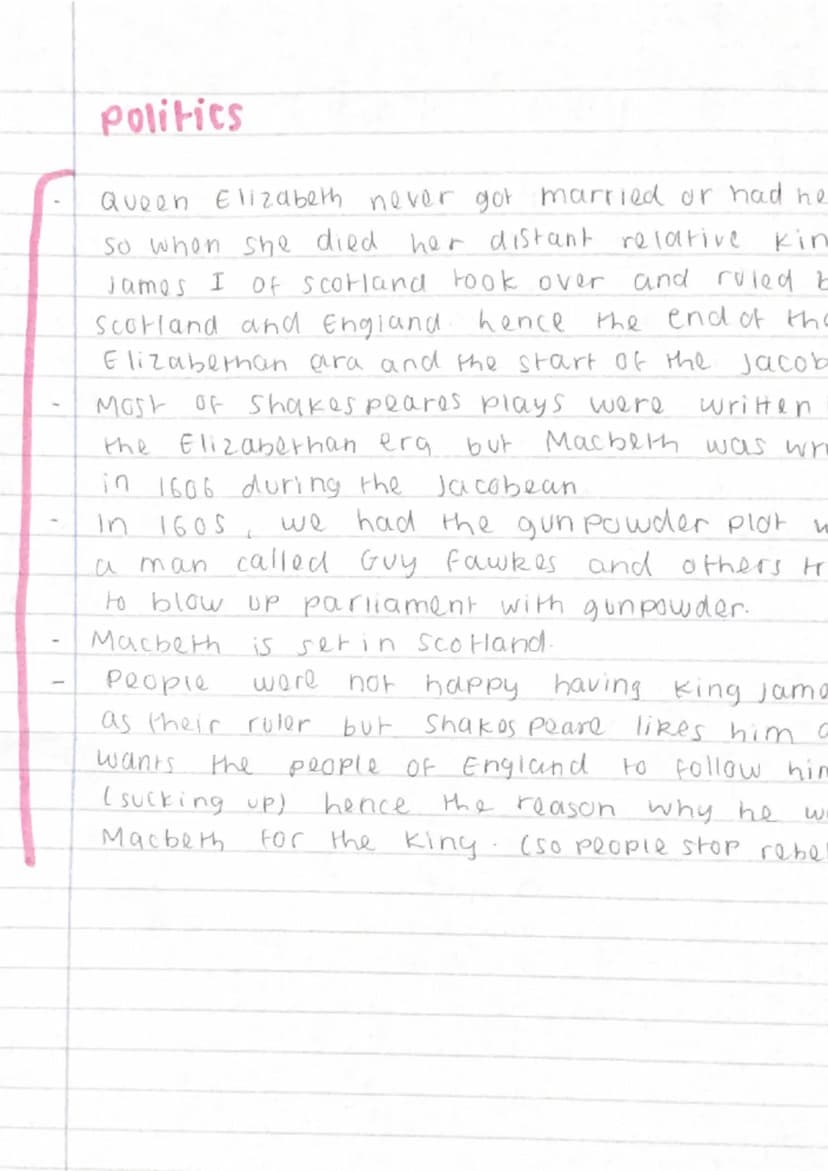 Politics
- Queen Elizabeth never got married or had he
so when she died her distant relative Kin
James I of Scotland took over and ruled b
Scotland and England. hence the end of the
Elizabethan era and the start of the Jacob
- Most of Shakespeares plays were written
the Elizabethan era but Macbeth was wri
in 1606 during the Jacobean
- In 1605, we had the gunpowder plot w
a man called Guy Fawkes and others tr
to blow up parliament with gunpowder.
- Macbeth is set in Scotland.
- People were not happy having King Jame
as their ruler but Shakespeare likes him a
wants the people of England to follow him
(sucking up) hence the reason why he w
Macbeth for the King. (so people stop rebel